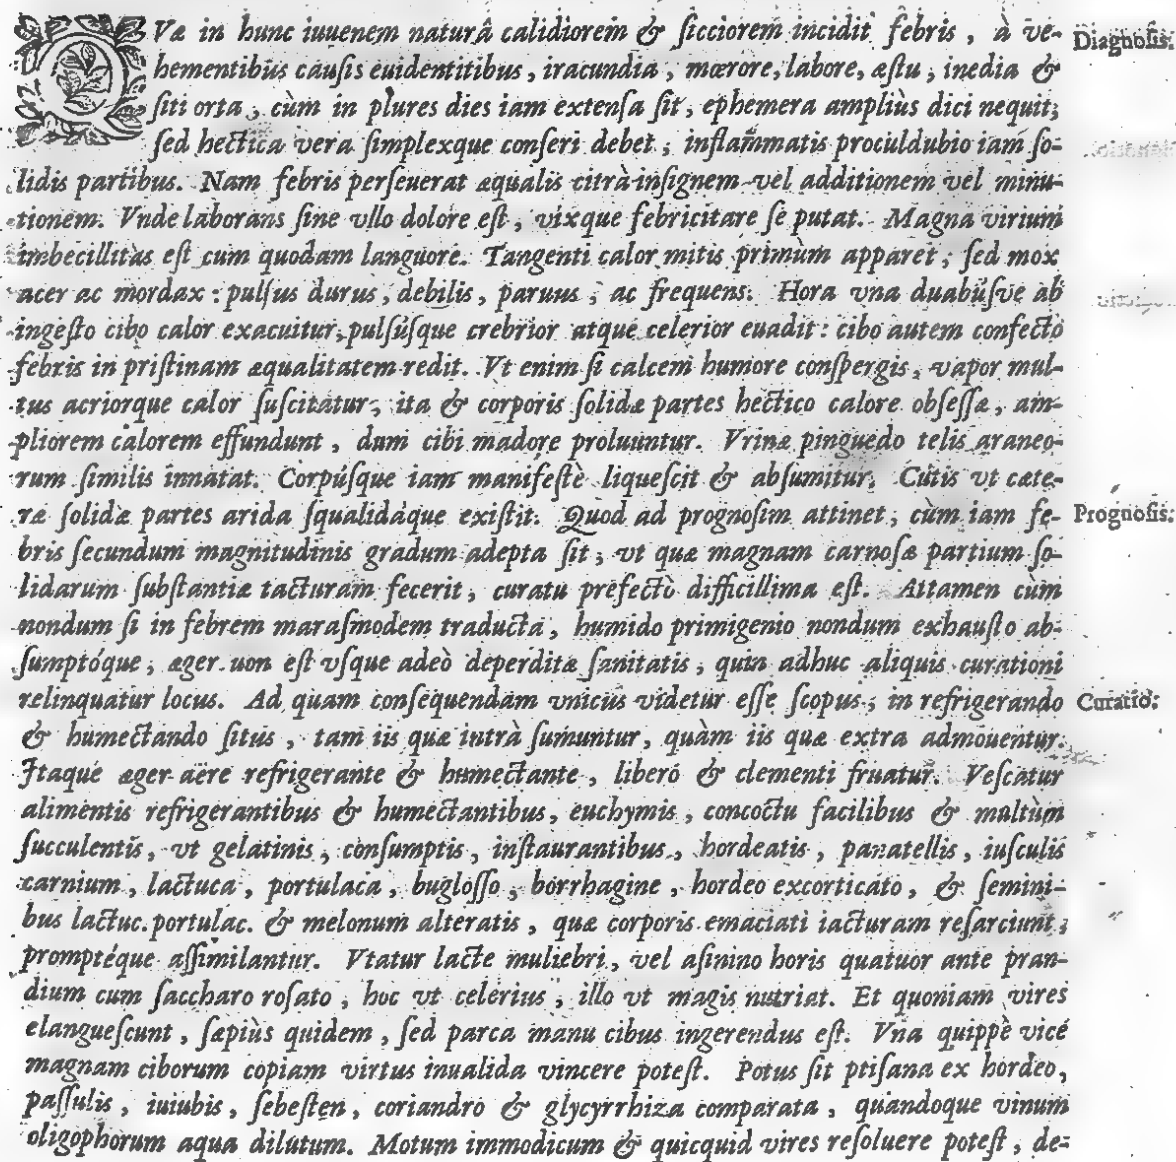 QVæ in hunc iuuenem naturâ calidiorem & ſicciorem incidit febris, à ve- Diagnoſis:
hementibus cauſis euidentitibus, iracundia, mœrore, labore, æſtu, inedia &
ſiti orta, cùm in plures dies iam extenſa ſit, ephemera ampliùs dici nequit;
ſed hectica vera ſimplexque conſeri debet, inflammatis proculdubio iam ſo-
lidis partibus. Nam febris perſeuerat æqualis citrà inſignem vel additionem vel minu-
tionem. Vnde laborans ſine vllo dolore eſt, vixque febricitare ſe putat. Magna virium
imbecillitas eſt cum quodam languore. Tangenti calor mitis primùm apparet, ſed mox
acer ac mordax: pulſus durus, debilis, paruus, ac frequens. Hora vna duabúſve ab
ingeſto cibo calor exacuitur, pulſúſque crebrior atque celerior euadit: cibo autem confecto
febris in priſtinam æqualitatem redit. Vt enim ſi calcem humore conſpergis, vapor mul-
tus acriorque calor ſuſcitatur, ita & corporis ſolidæ partes hectico calore obſeſſæ, am-
pliorem calorem effundunt, dum cibi madore proluuntur. Vrinæ pinguedo telis araneo-
rum ſimilis innatat. Corpúſque iam manifeſtè liqueſcit & abſumitur. Cutis vt cæte-
ræ ſolidæ partes arida ſqualidáque exiſtit. Quod ad prognoſim attinet, cùm iam fe- Prognoſis:
bris ſecundum magnitudinis gradum adepta ſit, vt quæ magnam carnoſæ partium ſo-
lidarum ſubſtantiæ iacturam fecerit, curatu profectò difficillima eſt. Attamen cùm
nondum ſi in febrem maraſmodem traducta, humido primigenio nondum exhauſto ab-
ſumptóque, æger non eſt vſque adeò deperditæ ſanitatis, quin adhuc aliquis curationi
relinquatur locus. Ad quam conſequendam vnicus videtur eſſe ſcopus, in refrigerando Curatio:
& humectando ſitus, tam iis quæ intrà ſumuntur, quàm iis quæ extra admouentur.
Itaque æger aëre refrigerante & humectante, liberó & clementi fruatur. Veſcatur
alimentis refrigerantibus & humectantibus, euchymis, concoctu facilibus & multùm
ſucculentis, vt gelatinis, conſumptis, inſtaurantibus, hordeatis, panatellis, iuſculis
carnium, lactuca, portulaca, bugloſſo, borrhagine, hordeo excorticato, & ſemini-
bus lactuc. portulac. & melonum alteratis, quæ corporis emaciati iacturam reſarciunt,
promptéque aſſimilantur. Vtatur lacte muliebri, vel aſinino horis quatuor ante pran-
dium cum ſaccharo roſato, hoc vt celerius, illo vt magis nutriat. Et quoniam vires
elangueſcunt, ſæpiùs quidem, ſed parca manu cibus ingerendus eſt. Vna quippè vicé
magnam ciborum copiam virtus inualida vincere poteſt. Potus ſit ptiſana ex hordeo,
paſſulis, iuiubis, ſebeſten, coriandro & glycyrrhiza comparata, quandoque vinum
oligophorum aqua dilutum. Motum immodicum & quicquid vires reſoluere poteſt, de-